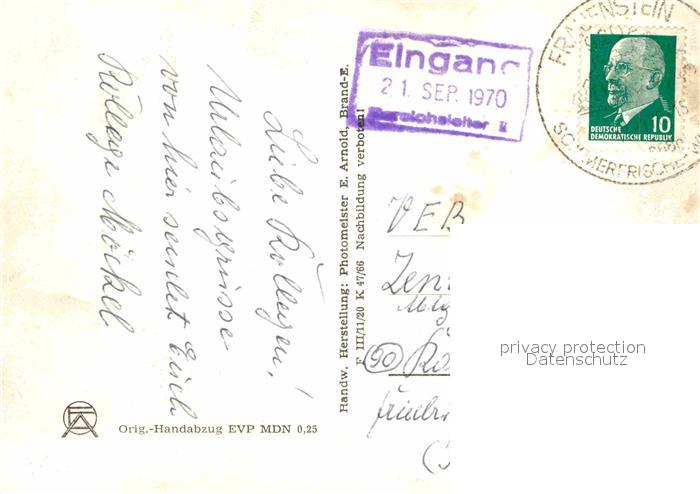 Liebe Kollegen!
Urlaubsgrüsse
von hier sendet Euch
Kollege Möckel
Orig.-Handabzug EVP MDN 0,25
Handw. Herstellung: Photomeister E. Arnold, Brand-E.
F III/11/20 K 47/66 Nachbildung verboten!
Eingang
21. SEP. 1970
Bereichsleiter II
FRAUENSTEIN
DEUTSCHE
DEMOKRATISCHE REPUBLIK
10
VEB
Zen
(90)
privacy protection
Datenschutz